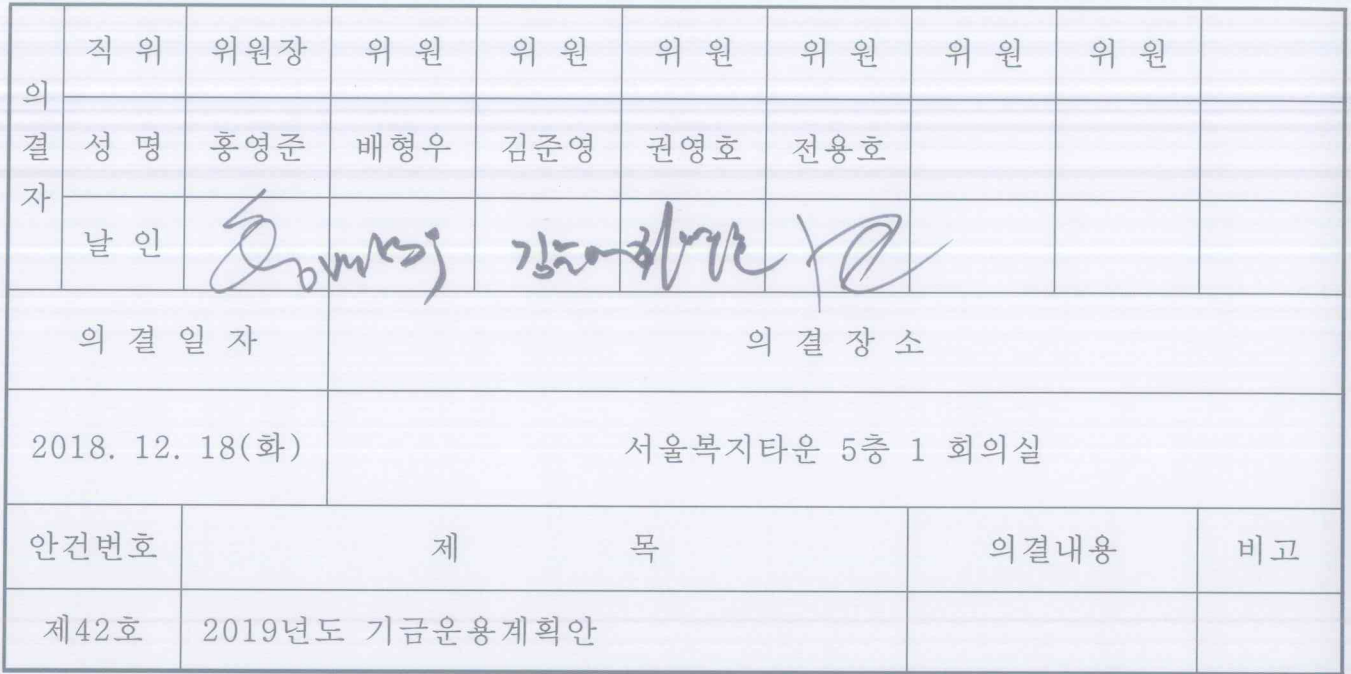 직 위 위원장 위 원 위 원 위 원 위 원 위 원 위 원
의결자
성 명 홍영준 배형우 김준영 권영호 전용호
날 인
의 결 일 자 의 결 장 소
2018. 12. 18(화) 서울복지타운 5층 1 회의실
안건번호 제 목 의결내용 비고
제42호 2019년도 기금운용계획안